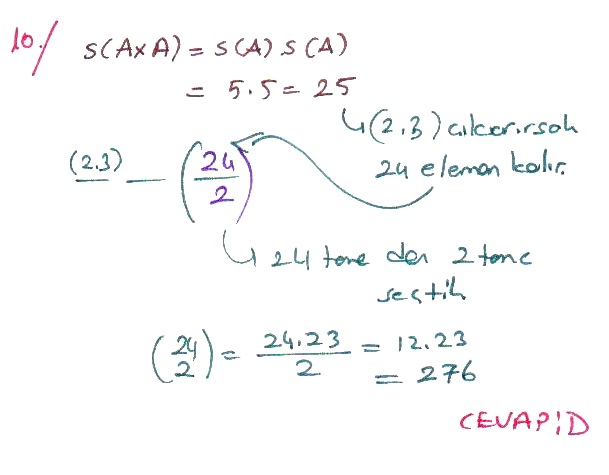 10./ s(AxA) = s(A) s(A)
= 5.5 = 25
↳(2,3) çıkarırsak
(2,3) — (24/2) 24 eleman kalır.
↳ 24 tane den 2 tane
seçtik
(24 2) = 24.23/2 = 12.23
= 276
CEVAP: D